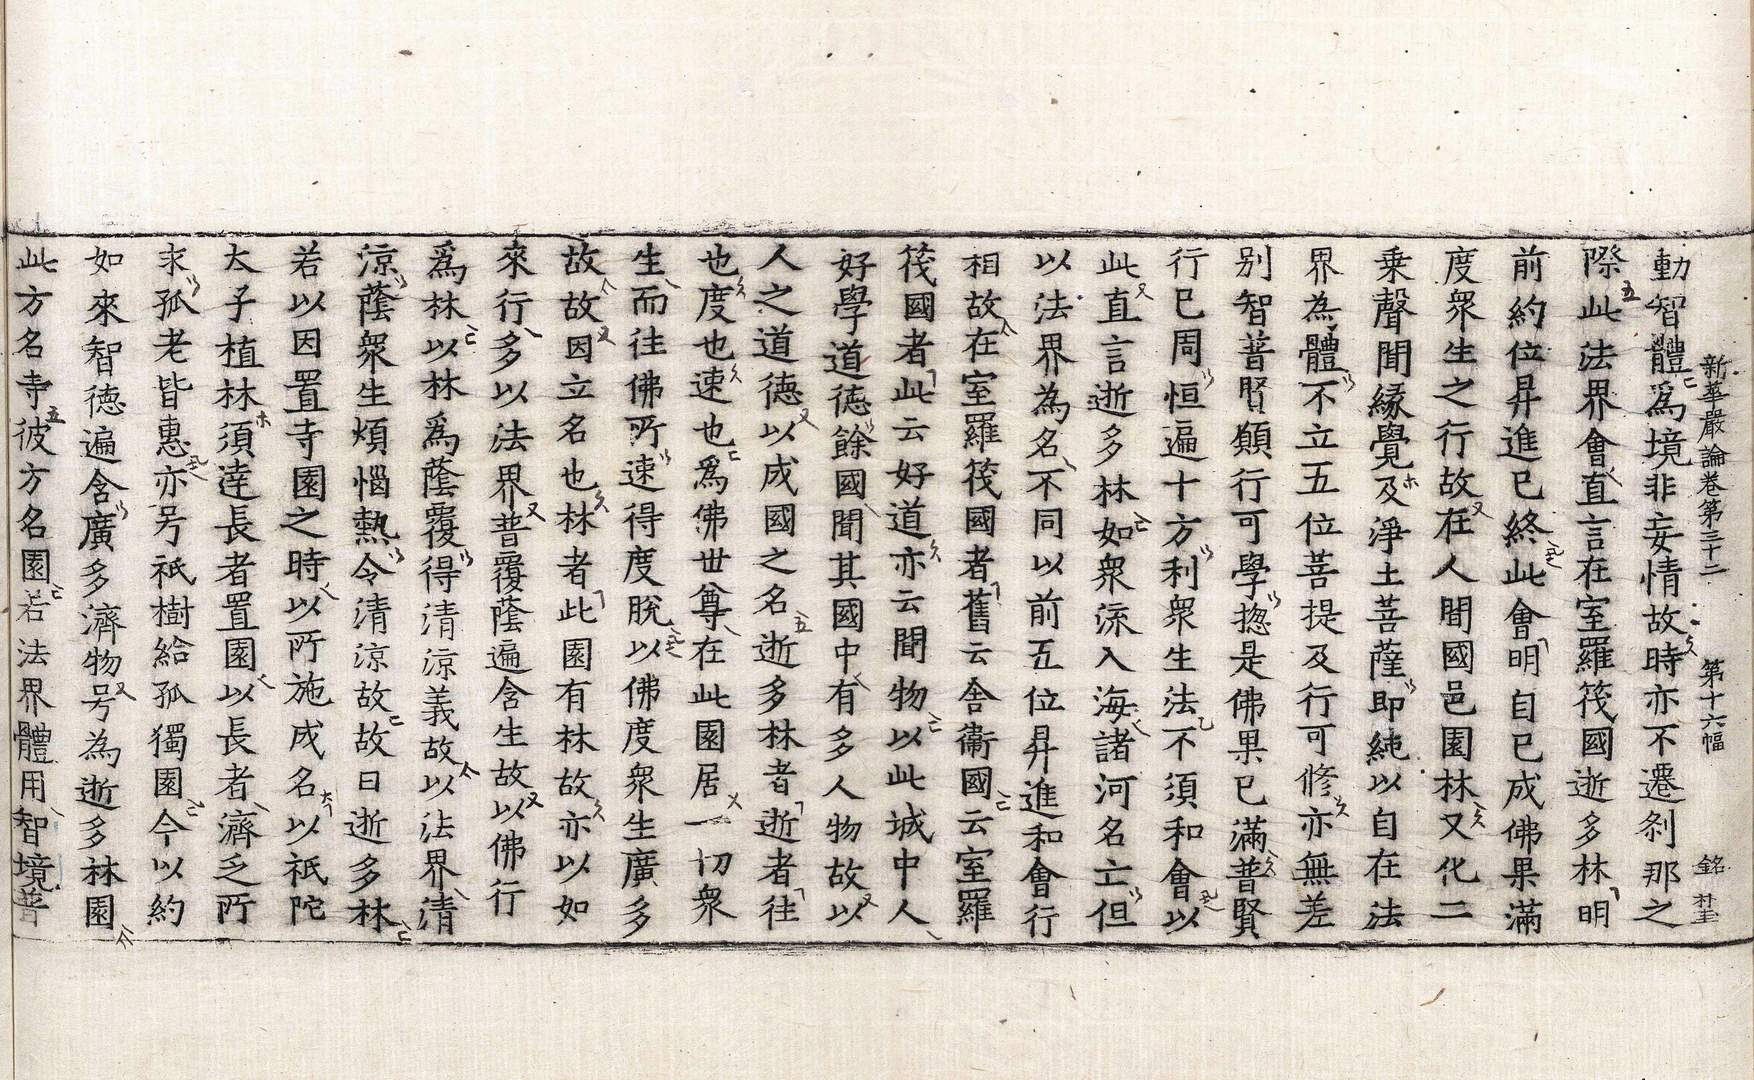 新華嚴論卷第三十二 第十六幅 銘
動智體爲境非妄情故時亦不遷刹那之
際此法界會直言在室羅筏國逝多林明
前約位昇進已終此會明自已成佛果滿
度衆生之行故在人間國邑園林又化二
乗聲聞緣覺及淨土菩薩即純以自在法
界為體不立五位菩提及行可修亦無差
别智普賢願行可學揔是佛果已滿普賢
行已周恒遍十方利衆生法不須和會以
此直言逝多林如衆流入海諸河名立但
以法界為名不同以前五位昇進和會行
相故在室羅筏國者舊云舍衞國云室羅
筏國者此云好道亦云聞物以此城中人
好學道德餘國聞其國中有多人物故以
人之道德以成國之名逝多林者逝者往
也度也速也爲佛世尊在此園居一切衆
生而往佛所速得度脫以佛度衆生廣多
故故因立名也林者此園有林故亦以如
來行多以法界普覆蔭遍含生故以佛行
爲林以林爲蔭覆得清涼義故以法界清
涼蔭衆生煩惱熱令清涼故故曰逝多林
若以因置寺園之時以所施成名以祇陀
太子植林須達長者置園以長者濟乏所
求孤老皆惠亦号祇樹給孤獨園今以約
如來智德遍含廣多濟物号為逝多林園
此方名寺彼方名園若法界體用智境普